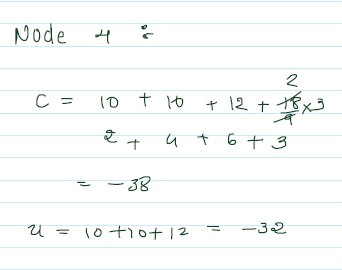 Node 4 :
2
C = 10 + 10 + 12 + 18/9 x 3
2 + 4 + 6 + 3
= -38
u = 10 + 10 + 12 = -32